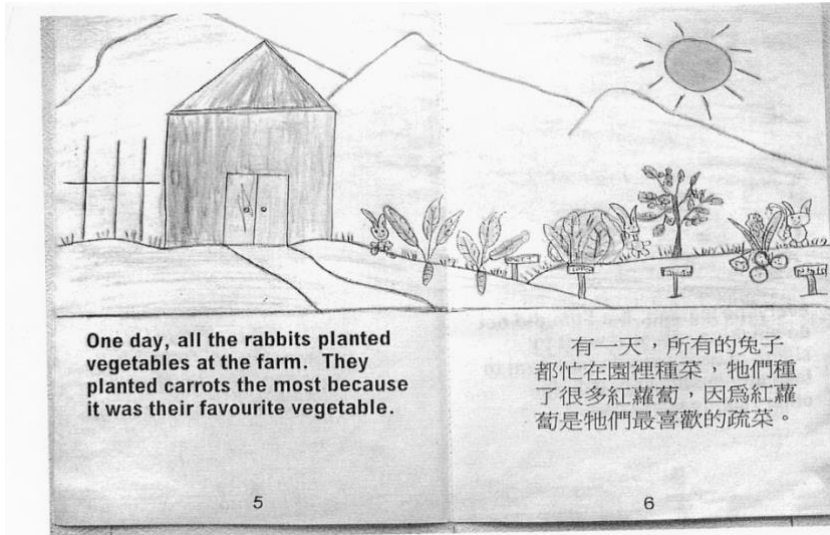 One day, all the rabbits planted
vegetables at the farm. They
planted carrots the most because
it was their favourite vegetable.
5
有一天，所有的兔子
都忙在園裡種菜，牠們種
了很多紅蘿蔔，因爲紅蘿
蔔是牠們最喜歡的疏菜。
6